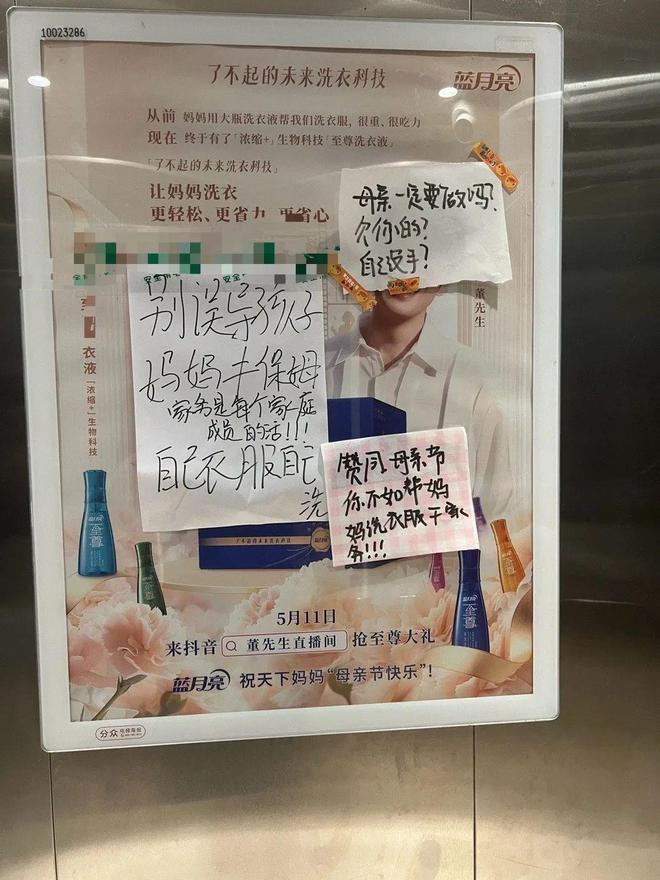 10023286
了不起的未来洗衣科技
蓝月亮
从前 妈妈用大瓶洗衣液帮我们洗衣服，很重、很吃力
现在 终于有了「浓缩+」生物科技「至尊洗衣液」
「了不起的未来洗衣科技」
让妈妈洗衣
更轻松、更省力 更省心
母亲一定要做吗?
欠你的?
自己没手?
董先生
别误导孩子
妈妈≠保姆
家务是每个家庭
成员的活!!!
自己衣服自己
洗
衣液「浓缩+」生物科技
赞同,母亲节
你不如帮妈
妈洗衣服干家
务!!!
至尊
至尊
了不起的未来洗衣科技
5月11日
来抖音 董先生直播间 抢至尊大礼
蓝月亮 祝天下妈妈“母亲节快乐”!
分众 电梯海报